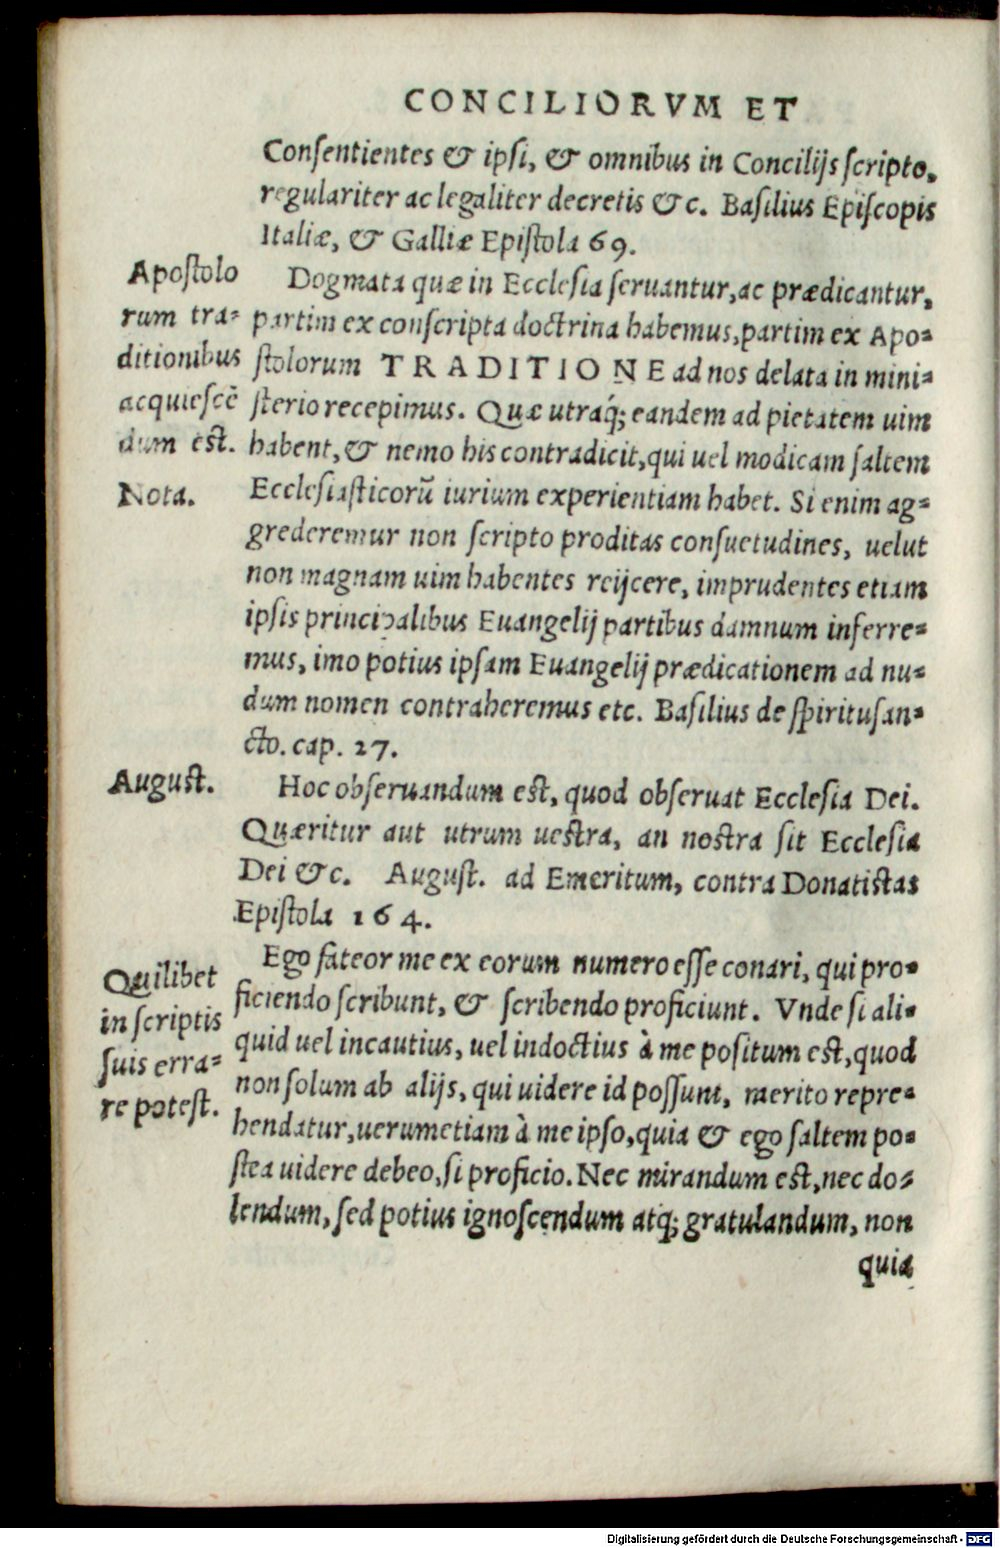 CONCILIORVM ET
Consentientes & ipsi, & omnibus in Concilijs scripto,
regulariter ac legaliter decretis &c. Basilius Episcopis
Italiæ, & Galliæ Epistola 69.
Apostolo
rum tra=
ditionibus
acquiescē
dum est.
Nota.
Dogmata quæ in Ecclesia seruantur, ac prædicantur,
partim ex conscripta doctrina habemus, partim ex Apo=
stolorum TRADITIONE ad nos delata in mini=
sterio recepimus. Quæ utraq́; eandem ad pietatem uim
habent, & nemo his contradicit, qui uel modicam saltem
Ecclesiasticorū iurium experientiam habet. Si enim ag=
grederemur non scripto proditas consuetudines, uelut
non magnam uim habentes reijcere, imprudentes etiam
ipsis principalibus Euangelij partibus damnum inferre=
mus, imo potius ipsam Euangelij prædicationem ad nu=
dum nomen contraheremus etc. Basilius de spiritusan=
cto. cap. 27.
August.
Hoc obseruandum est, quod obseruat Ecclesia Dei.
Quæritur aut utrum uestra, an nostra sit Ecclesia
Dei &c. August. ad Emeritum, contra Donatistas
Epistola 164.
Quilibet
in scriptis
suis erra=
re potest.
Ego fateor me ex eorum numero esse conari, qui pro=
ficiendo scribunt, & scribendo proficiunt. Vnde si ali=
quid uel incautius, uel indoctius à me positum est, quod
non solum ab alijs, qui uidere id possunt, merito repre=
hendatur, uerumetiam à me ipso, quia & ego saltem po=
stea uidere debeo, si proficio. Nec mirandum est, nec do=
lendum, sed potius ignoscendum atq; gratulandum, non
quia
Digitalisierung gefördert durch die Deutsche Forschungsgemeinschaft - DFG